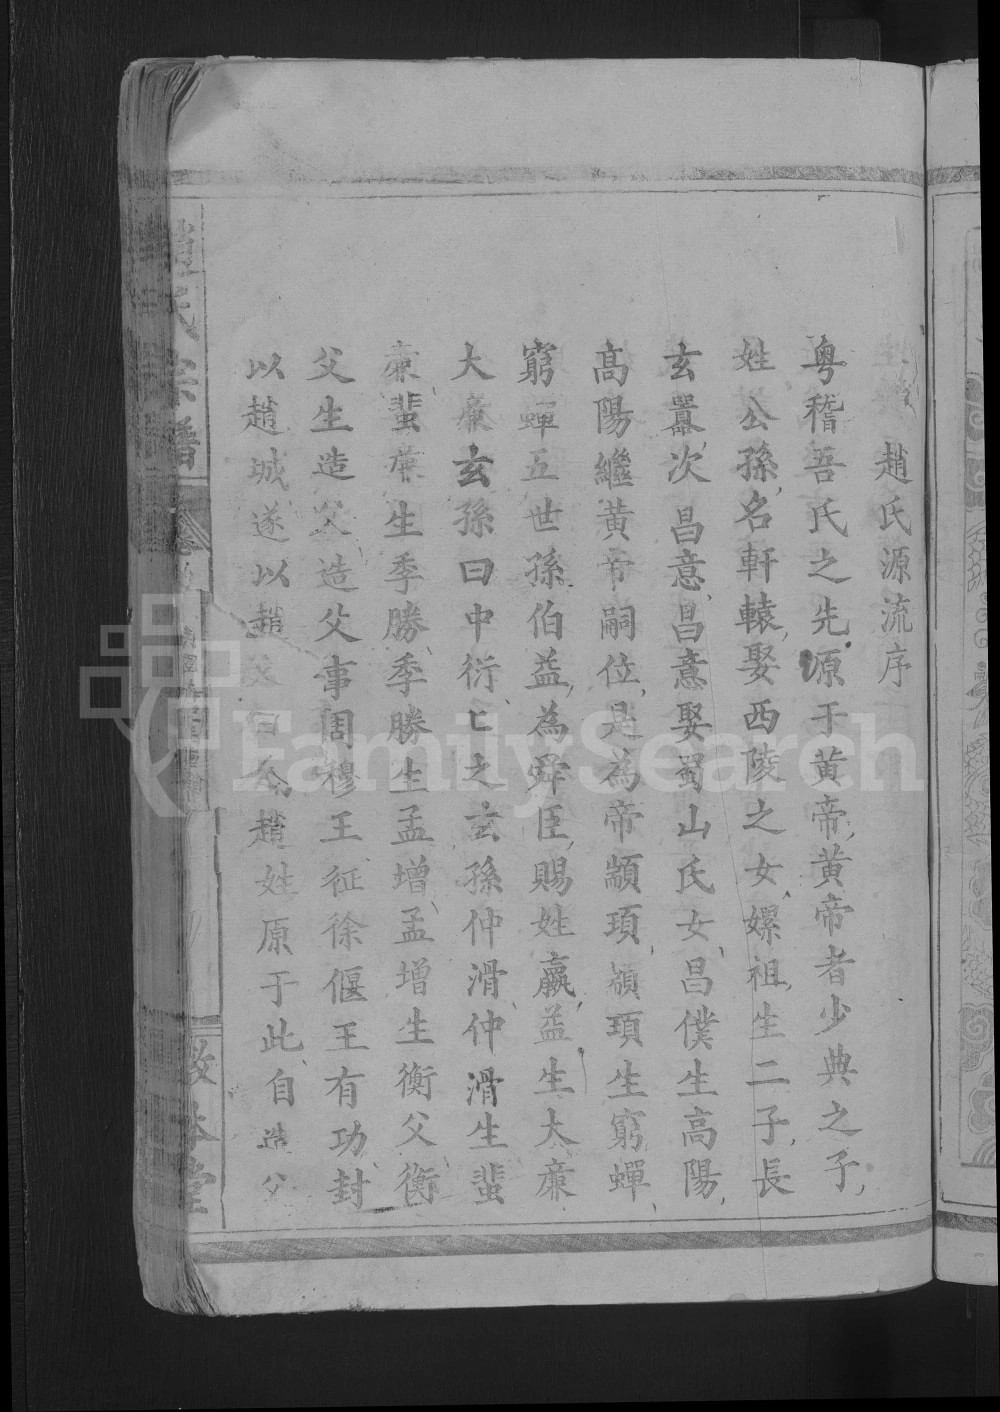 趙氏源流序
粵稽吾氏之先源于黃帝黃帝者少典之子
姓公孫名軒轅娶西陵之女嫘祖生二子長
玄囂次昌意昌意娶蜀山氏女昌僕生高陽
高陽繼黃帝嗣位是為帝顓頊顓頊生窮蟬
窮蟬五世孫伯益為舜臣賜姓嬴益生大廉
大廉玄孫曰中衍衍之玄孫仲滑仲滑生蜚
廉蜚廉生季勝季勝生孟增孟增生衡父衡
父生造父造父事周穆王征徐偃王有功封
以趙城遂以趙為曰今趙姓原于此自造父
趙氏宗譜
卷
敦本堂
FamilySearch